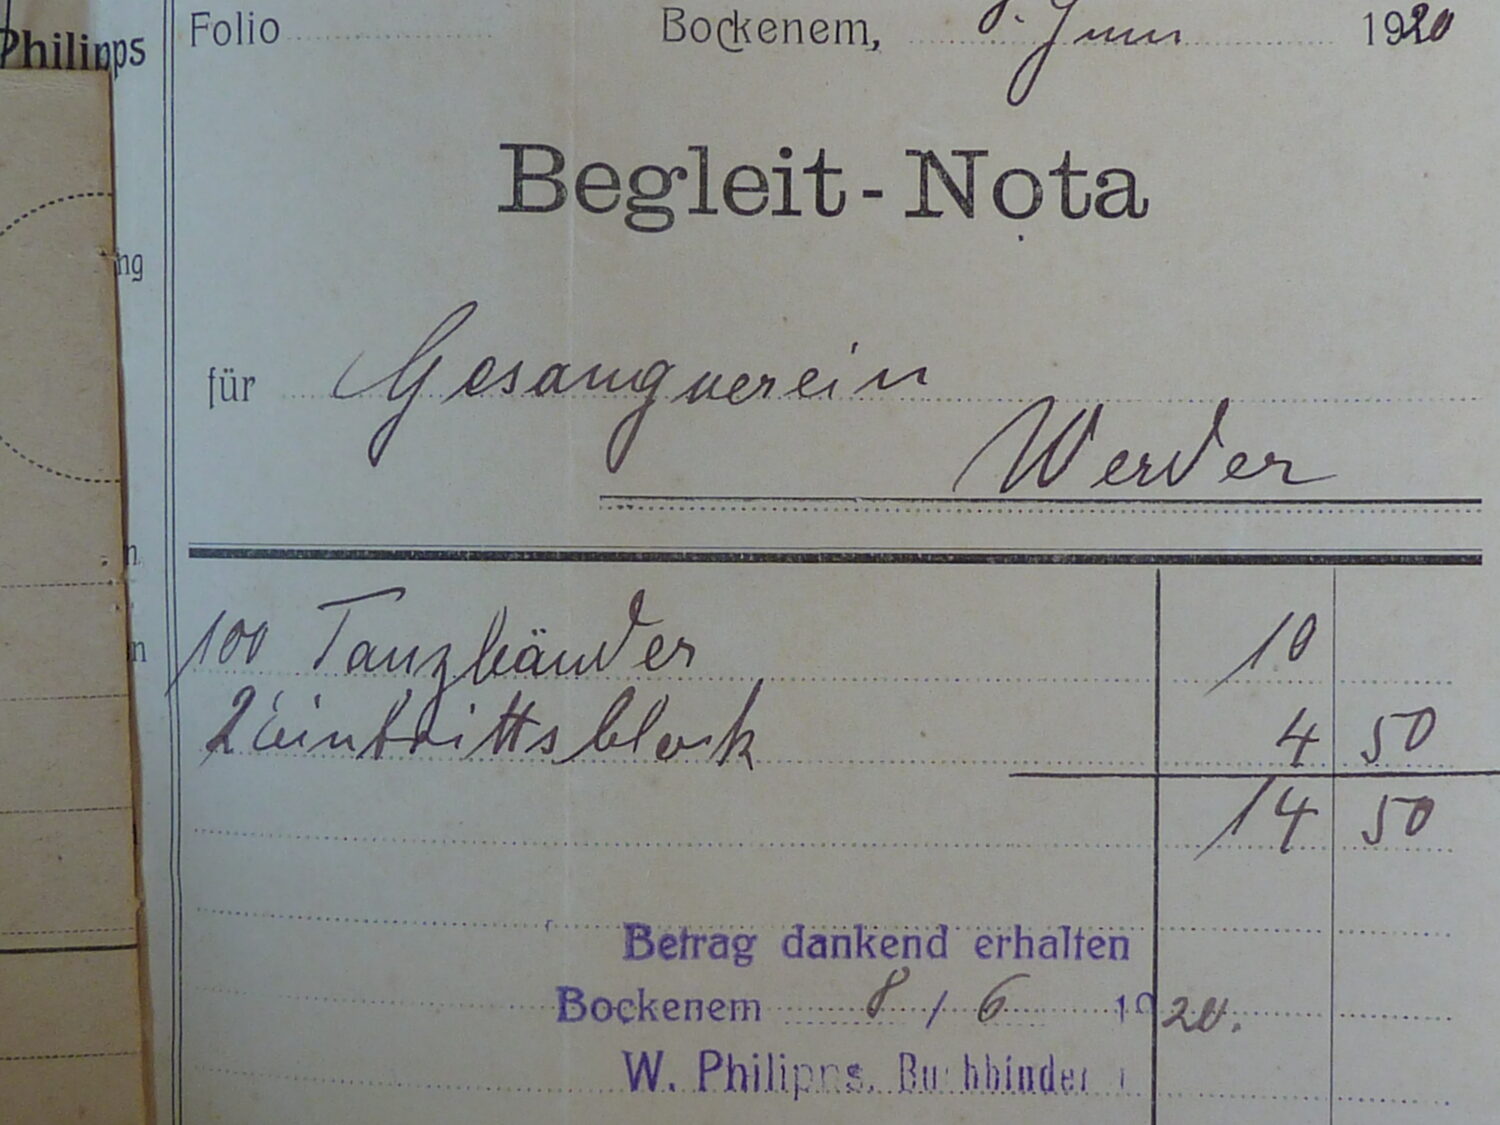 Philipps
Folio
Bockenem, 8. Juni 1920
Begleit-Nota
ng
für Gesangverein
Werder
n
n
100 Tanzbänder 10
2 Eintrittsblock 4 50
14 50
Betrag dankend erhalten
Bockenem 8/6 1920.
W. Philipps, Buchbinder